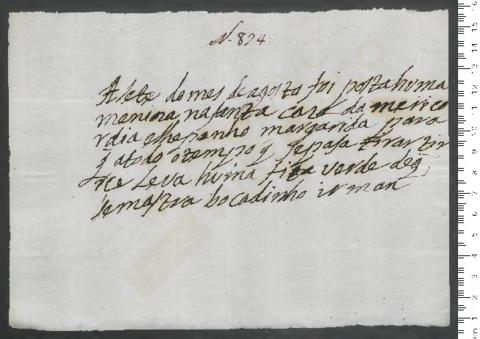 N. 894
A sete do mes de agosto foi posta huma
menina na santa casa da mericor
rdia e he ponho margarida para
q̃ a todo o tempo q̃ se posa tirar
leva huma fita verde de q̃
se mostra bocadinho irman